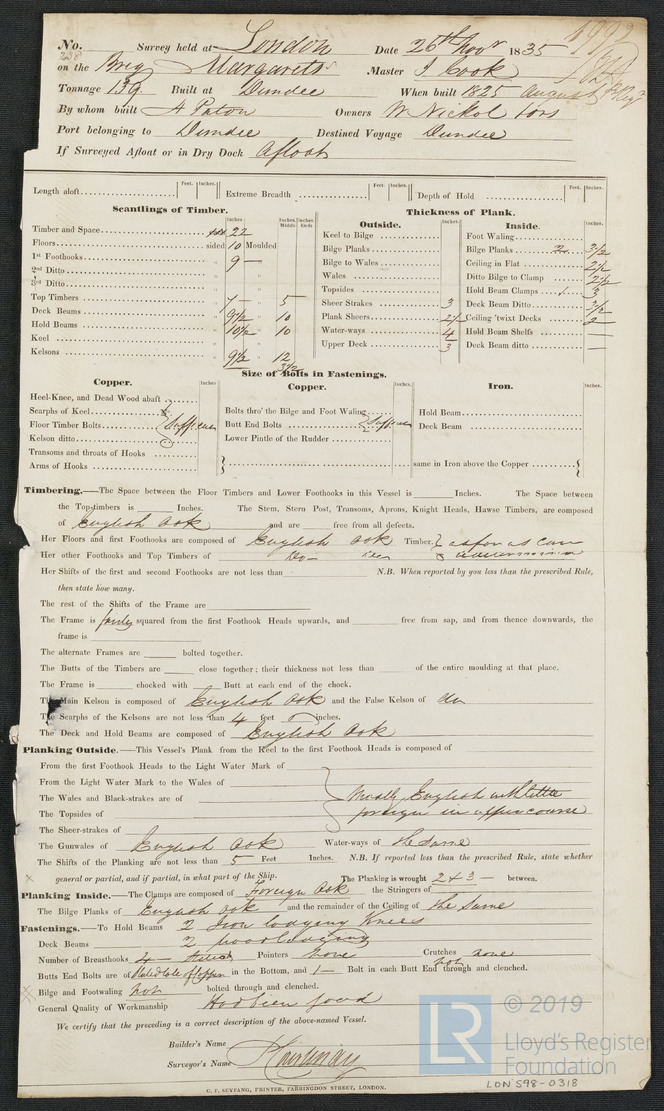 No. 238 Survey held at London Date 26th Novr 1835
on the Brig Margarets Master J Cook
Tonnage 139 Built at Dundee When built 1825 August
By whom built A Paton Owners W Nickol
Port belonging to Dundee Destined Voyage Dundee
If Surveyed Afloat or in Dry Dock Afloat
Length aloft Feet. Inches. Extreme Breadth Feet. Inches. Depth of Hold Feet. Inches.
Scantlings of Timber.
Inches. Inches. Middle Inches. Ends
Timber and Space 22
Floors sided 10 Moulded
1st Foothooks 9 —
2nd Ditto
3rd Ditto
Top Timbers 7 — 5
Deck Beams 9½ 10
Hold Beams 10½ 10
Keel
Kelsons 9½ 12
Thickness of Plank.
Outside. Inches
Keel to Bilge
Bilge Planks
Bilge to Wales
Wales
Topsides
Sheer Strakes 3
Plank Sheers 2½
Water-ways 4
Upper Deck 3
Inside. Inches.
Foot Waling
Bilge Planks 2 3½
Ceiling in Flat 2½
Ditto Bilge to Clamp 2½
Hold Beam Clamps 1 3
Deck Beam Ditto 3½
Ceiling 'twixt Decks 2
Hold Beam Shelfs —
Deck Beam ditto —
Size of Bolts in Fastenings.
Copper. Inches
Heel-Knee, and Dead Wood abaft
Scarphs of Keel
Floor Timber Bolts
Kelson ditto
Transoms and throats of Hooks
Arms of Hooks
Copper. Inches
Bolts thro' the Bilge and Foot Waling
Butt End Bolts
Lower Pintle of the Rudder
Iron. Inches.
Hold Beam
Deck Beam
same in Iron above the Copper
Timbering.—The Space between the Floor Timbers and Lower Foothooks in this Vessel is Inches. The Space between
the Top-timbers is Inches. The Stem, Stern Post, Transoms, Aprons, Knight Heads, Hawse Timbers, are composed
of English Oak and are free from all defects.
Her Floors and first Foothooks are composed of English Oak Timber.
Her other Foothooks and Top Timbers of Do
Her Shifts of the first and second Foothooks are not less than N.B. When reported by you less than the prescribed Rule,
then state how many.
The rest of the Shifts of the Frame are
The Frame is fairly squared from the first Foothook Heads upwards, and free from sap, and from thence downwards, the
frame is
The alternate Frames are bolted together.
The Butts of the Timbers are close together; their thickness not less than of the entire moulding at that place.
The Frame is chocked with Butt at each end of the chock.
The Main Kelson is composed of English Oak and the False Kelson of do
The Scarphs of the Kelsons are not less than 4 feet inches.
The Deck and Hold Beams are composed of English Oak
Planking Outside.—This Vessel's Plank from the Keel to the first Foothook Heads is composed of
From the first Foothook Heads to the Light Water Mark of
From the Light Water Mark to the Wales of
The Wales and Black-strakes are of Mostly English with little
The Topsides of foreign in upper course
The Sheer-strakes of
The Gunwales of English Oak Water-ways of the same
The Shifts of the Planking are not less than 5 Feet Inches. N.B. If reported less than the prescribed Rule, state whether
general or partial, and if partial, in what part of the Ship. The Planking is wrought 2 & 3 — between.
Planking Inside.—The Clamps are composed of Foreign Oak the Stringers of
The Bilge Planks of English oak and the remainder of the Ceiling of the Same
Fastenings.—To Hold Beams 2 Iron lodging Knees
Deck Beams 2 wood lodging
Number of Breasthooks 4 Pointers none Crutches none
Butts End Bolts are of in the Bottom, and 1 — Bolt in each Butt End not through and clenched.
Bilge and Footwaling not bolted through and clenched.
General Quality of Workmanship Has been good
We certify that the preceding is a correct description of the above-named Vessel.
Builder's Name
Surveyor's Name
C. F. SEYFANG, PRINTER, FARRINGDON STREET, LONDON.
LR © 2019
Lloyd's Register
Foundation
LON 598-0318